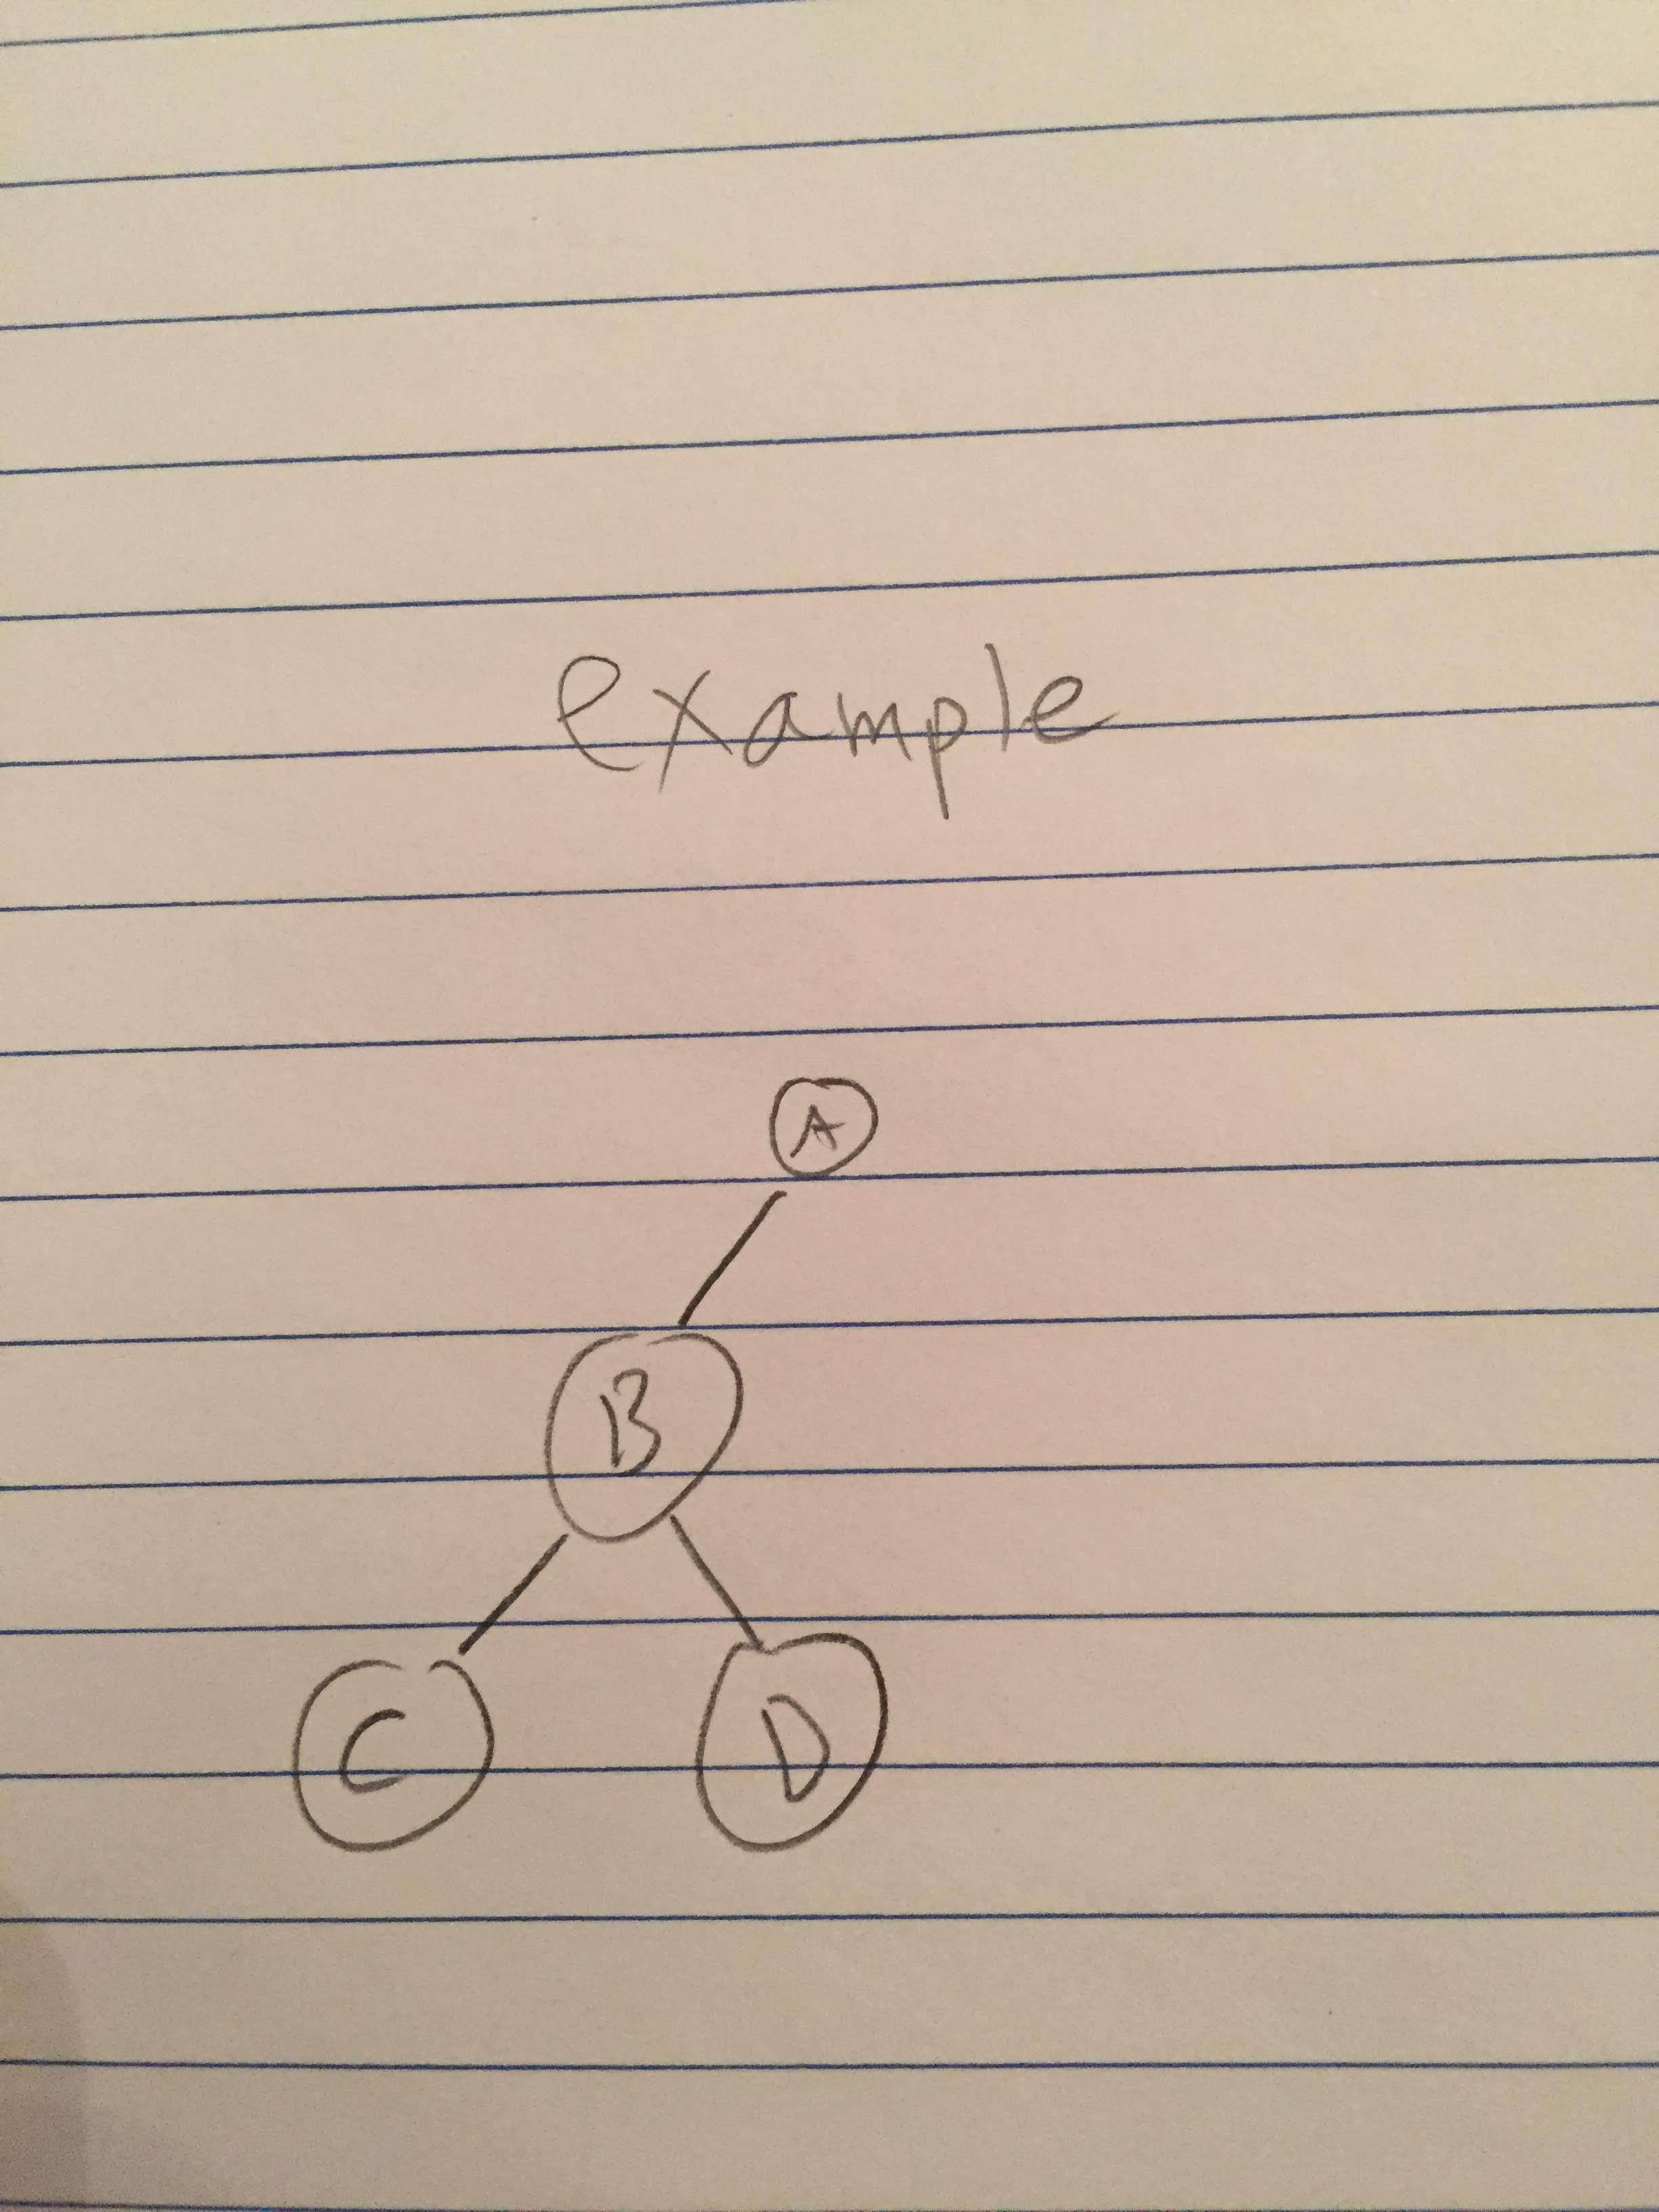 example
A
B
C D